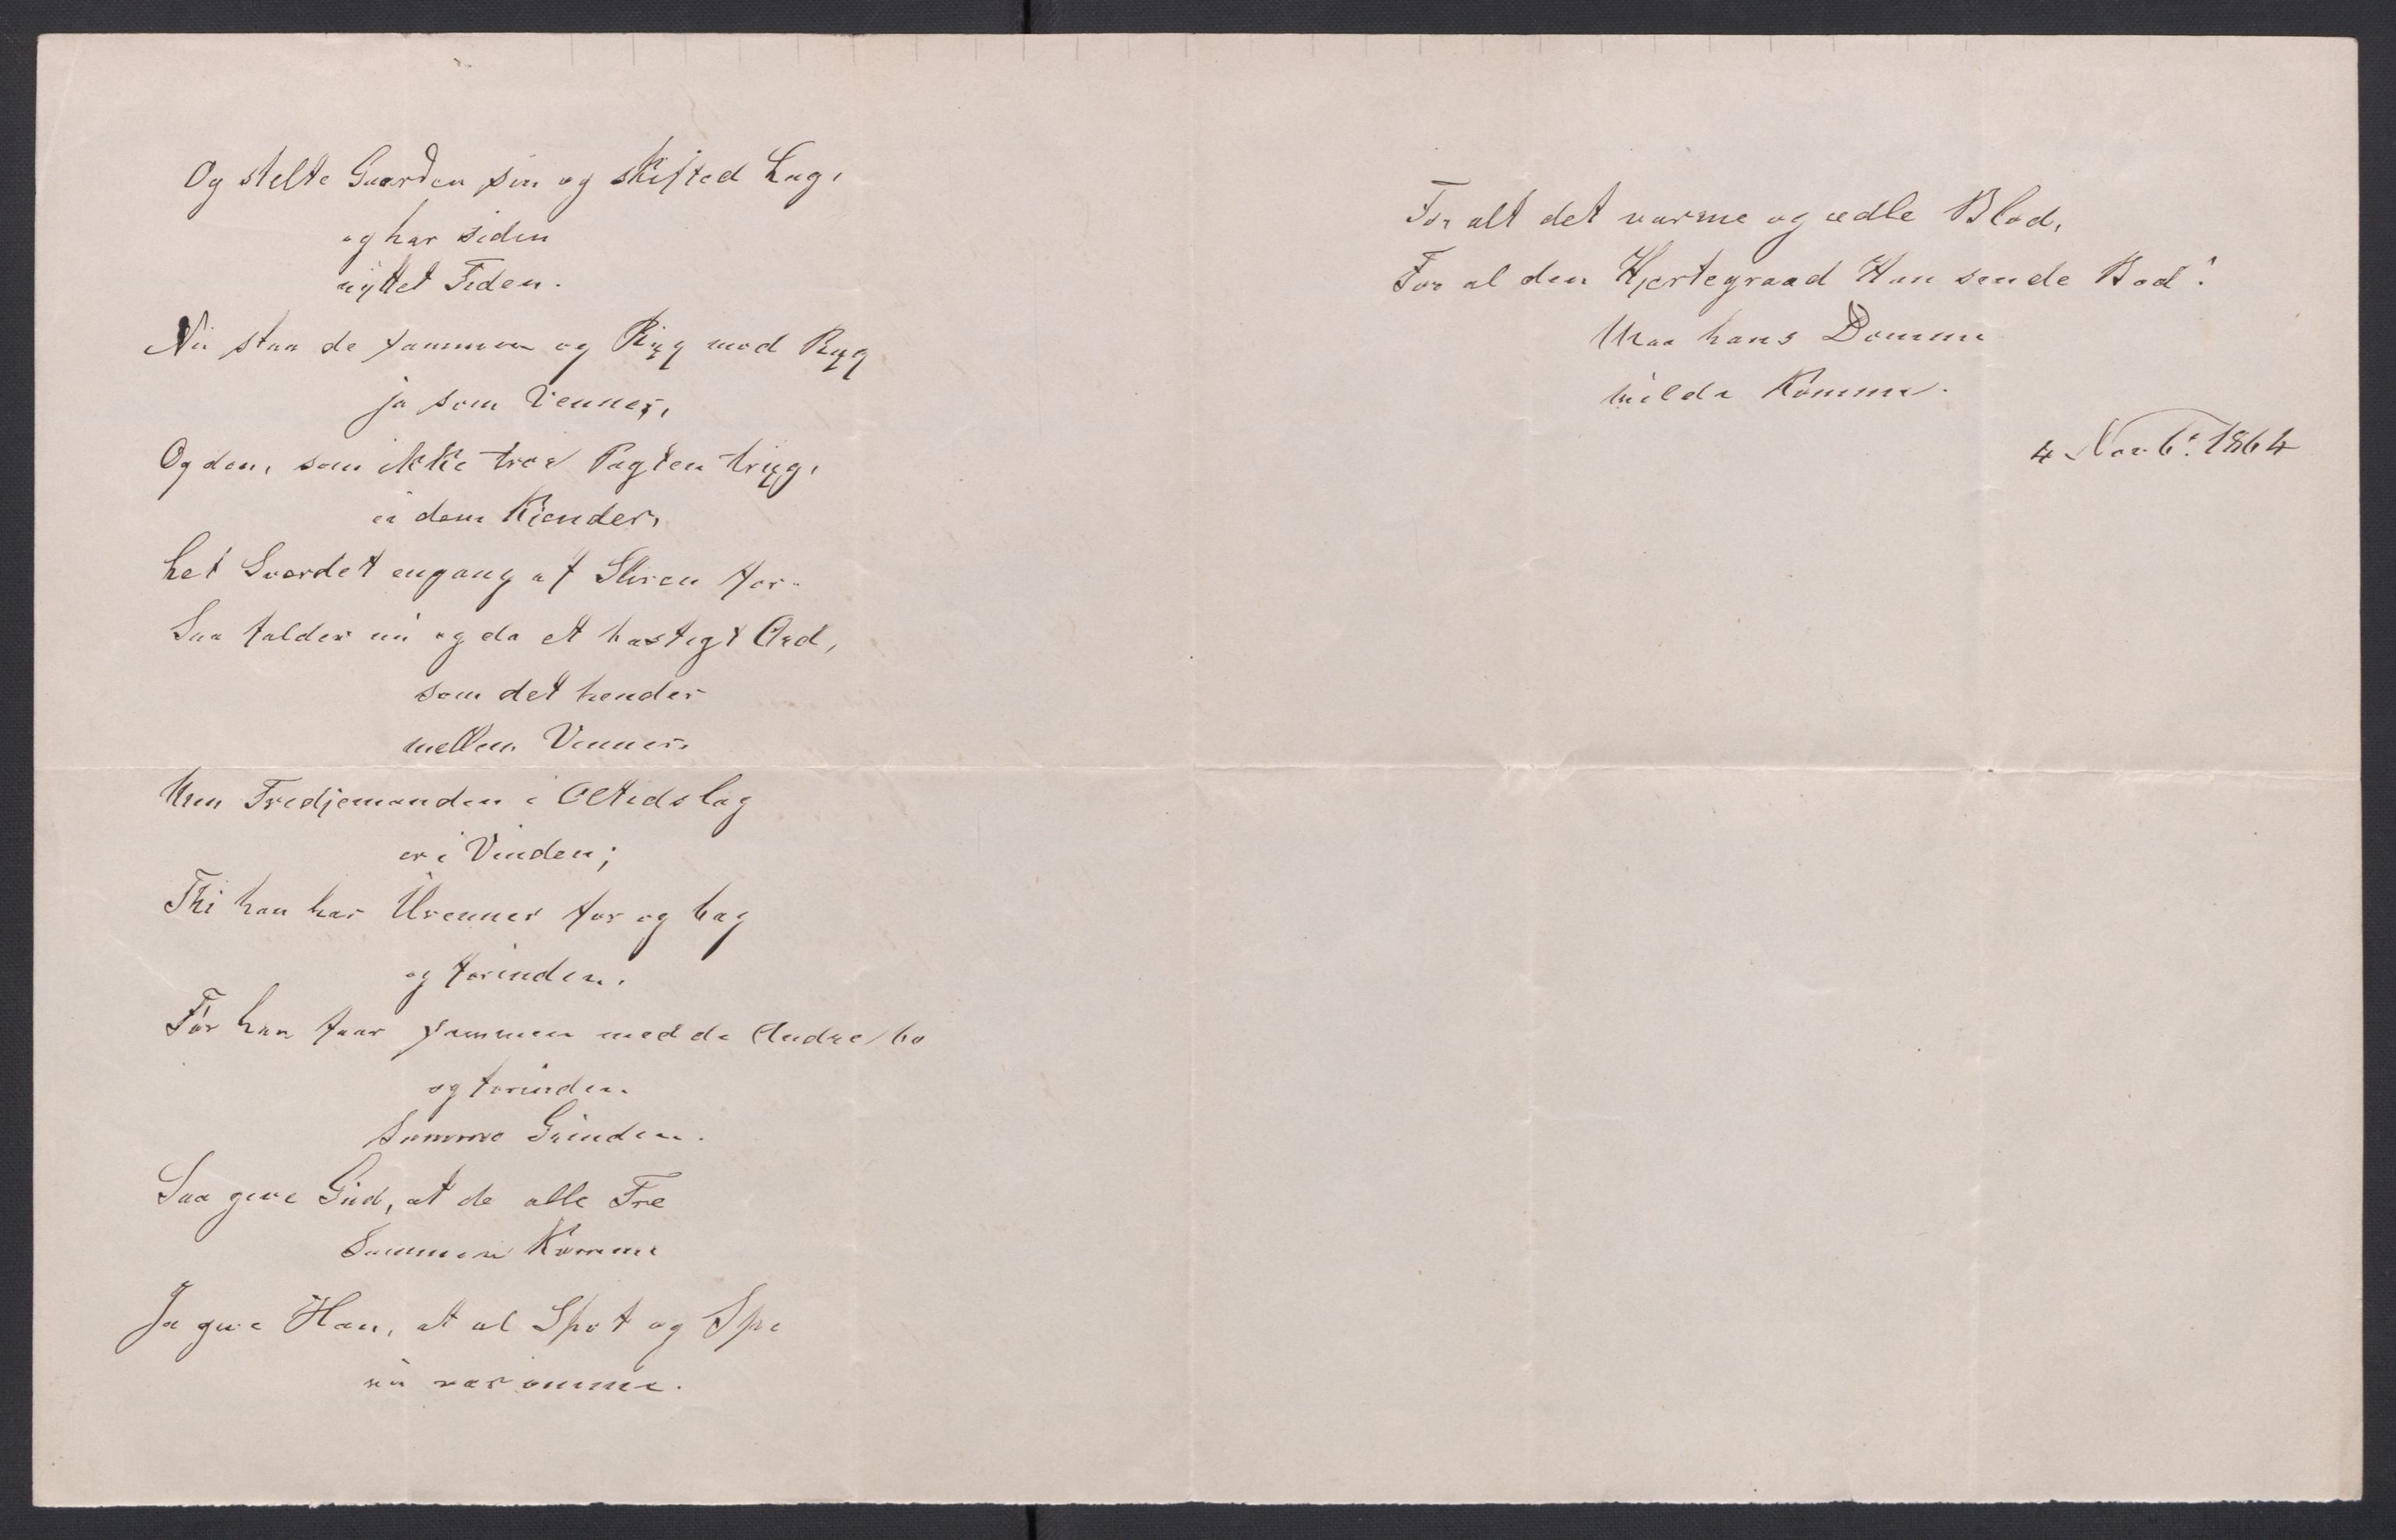 Og stelte Gaarden sin og skifted Lag,
og har siden
nyttet Tiden.
Nu staa de sammen og Ryg mod Ryg
ja som Venner,
Og den, som ikke troer Pagten tryg,
ei dem Kiender,
Let Sverdet engang af Sliren for
Saa falder nu og da et hastigt Ord,
som det hender
mellem Venner.
Men Tredjemanden i Oltidslag
er i Vinden;
Thi han har Uvenner for og bag
og forinden.
Før han faar sammen med de Andre bo
og forinden
samme Grinden.
Saa give Gud, at de alle Tre
Sammen Komme
Ja give Han, at al Spot og Spe
nu var omme.
For alt det varme og ædle Blod,
For al den Hjertegraad Han sende Bod!
Maa hans Domme
milde Komme.
4 Novbr. 1864